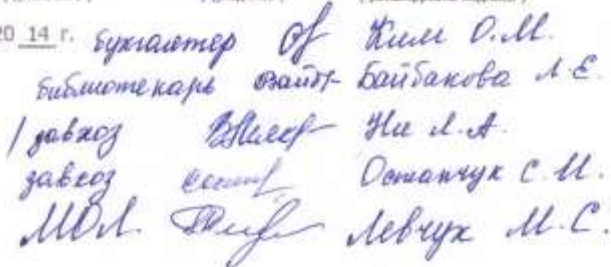 20 14 г. бухгалтер Ким О.М.
библиотекарь Байбакова Л.Е.
завхоз Ни Л.А.
завхоз Остапчук С.И.
МОЛ Левчук М.С.